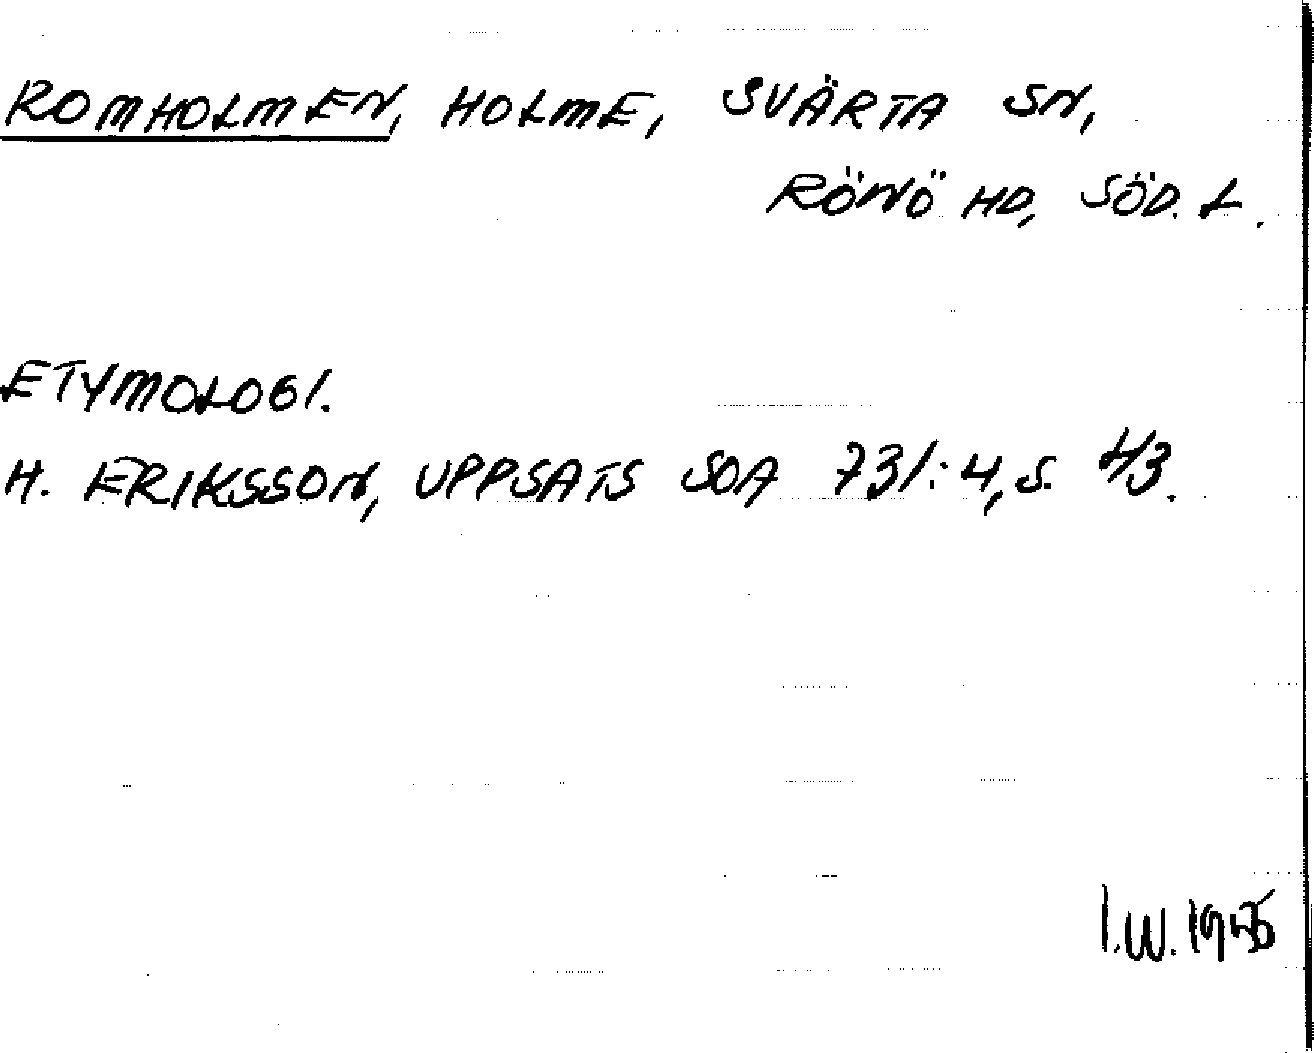 ROMHOLMEN, HOLME, SVÄRTA SN,
RÖNÖ HD, SÖD. L.
ETYMOLOGI.
H. ERIKSSON, UPPSATS SOA 731:4, S. 43.
I.W.